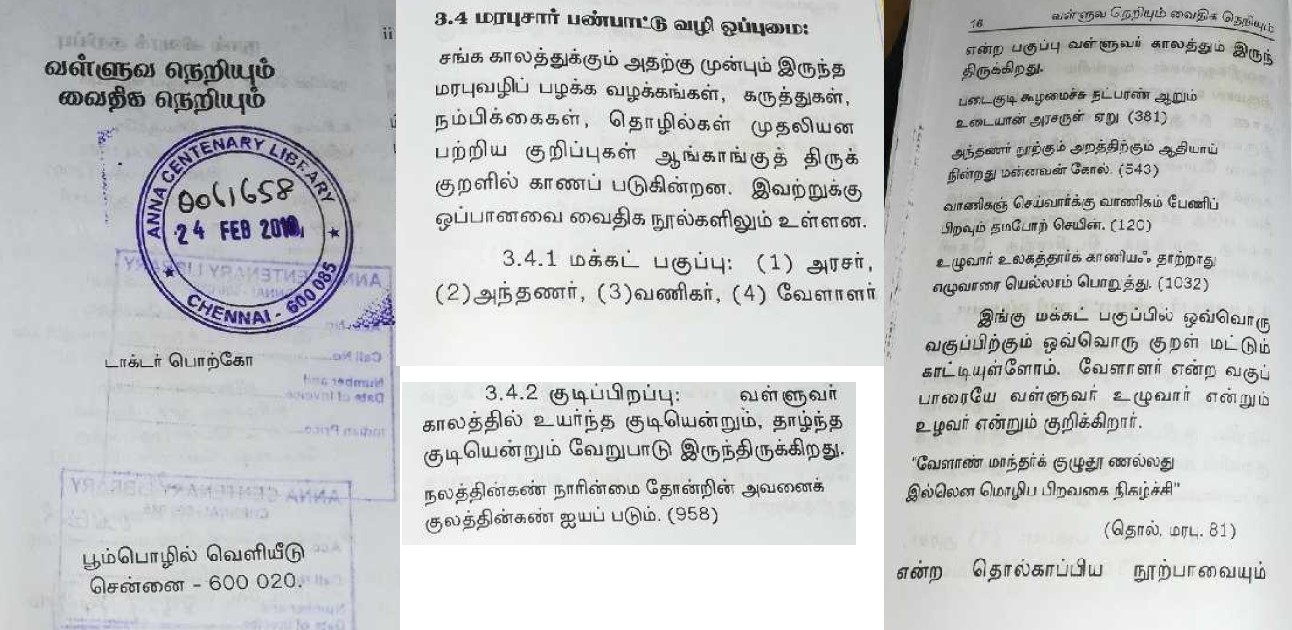 ii
வள்ளுவ நெறியும்
வைதிக நெறியும்
ANNA CENTENARY LIBRARY
0061658
24 FEB 2010
CHENNAI - 600 085
டாக்டர் பொற்கோ
பூம்பொழில் வெளியீடு
சென்னை - 600 020.
3.4 மரபுசார் பண்பாட்டு வழி ஒப்புமை:
சங்க காலத்துக்கும் அதற்கு முன்பும் இருந்த
மரபுவழிப் பழக்க வழக்கங்கள், கருத்துகள்,
நம்பிக்கைகள், தொழில்கள் முதலியன
பற்றிய குறிப்புகள் ஆங்காங்குத் திருக்
குறளில் காணப் படுகின்றன. இவற்றுக்கு
ஒப்பானவை வைதிக நூல்களிலும் உள்ளன.
3.4.1 மக்கட் பகுப்பு: (1) அரசர்,
(2)அந்தணர், (3)வணிகர், (4) வேளாளர்
3.4.2 குடிப்பிறப்பு: வள்ளுவர்
காலத்தில் உயர்ந்த குடியென்றும், தாழ்ந்த
குடியென்றும் வேறுபாடு இருந்திருக்கிறது.
நலத்தின்கண் நாரின்மை தோன்றின் அவனைக்
குலத்தின்கண் ஐயப் படும். (958)
16 வள்ளுவ நெறியும் வைதிக நெறியும்
என்ற பகுப்பு வள்ளுவர் காலத்தும் இருந்
திருக்கிறது.
படைகுடி கூழமைச்சு நட்பரண் ஆறும்
உடையான் அரசருள் ஏறு (381)
அந்தணர் நூற்கும் அறத்திற்கும் ஆதியாய்
நின்றது மன்னவன் கோல். (543)
வாணிகஞ் செய்வார்க்கு வாணிகம் பேணிப்
பிறவும் தமபோற் செயின். (120)
உழுவார் உலகத்தார்க் காணியஃ தாற்றாது
எழுவாரை யெல்லாம் பொறுத்து. (1032)
இங்கு மக்கட் பகுப்பில் ஒவ்வொரு
வகுப்பிற்கும் ஒவ்வொரு குறள் மட்டும்
காட்டியுள்ளோம். வேளாளர் என்ற வகுப்
பாரையே வள்ளுவர் உழுவார் என்றும்
உழவர் என்றும் குறிக்கிறார்.
"வேளாண் மாந்தர்க் குழுதூ ணல்லது
இல்லென மொழிப பிறவகை நிகழ்ச்சி"
(தொல். மரபு. 81)
என்ற தொல்காப்பிய நூற்பாவையும்